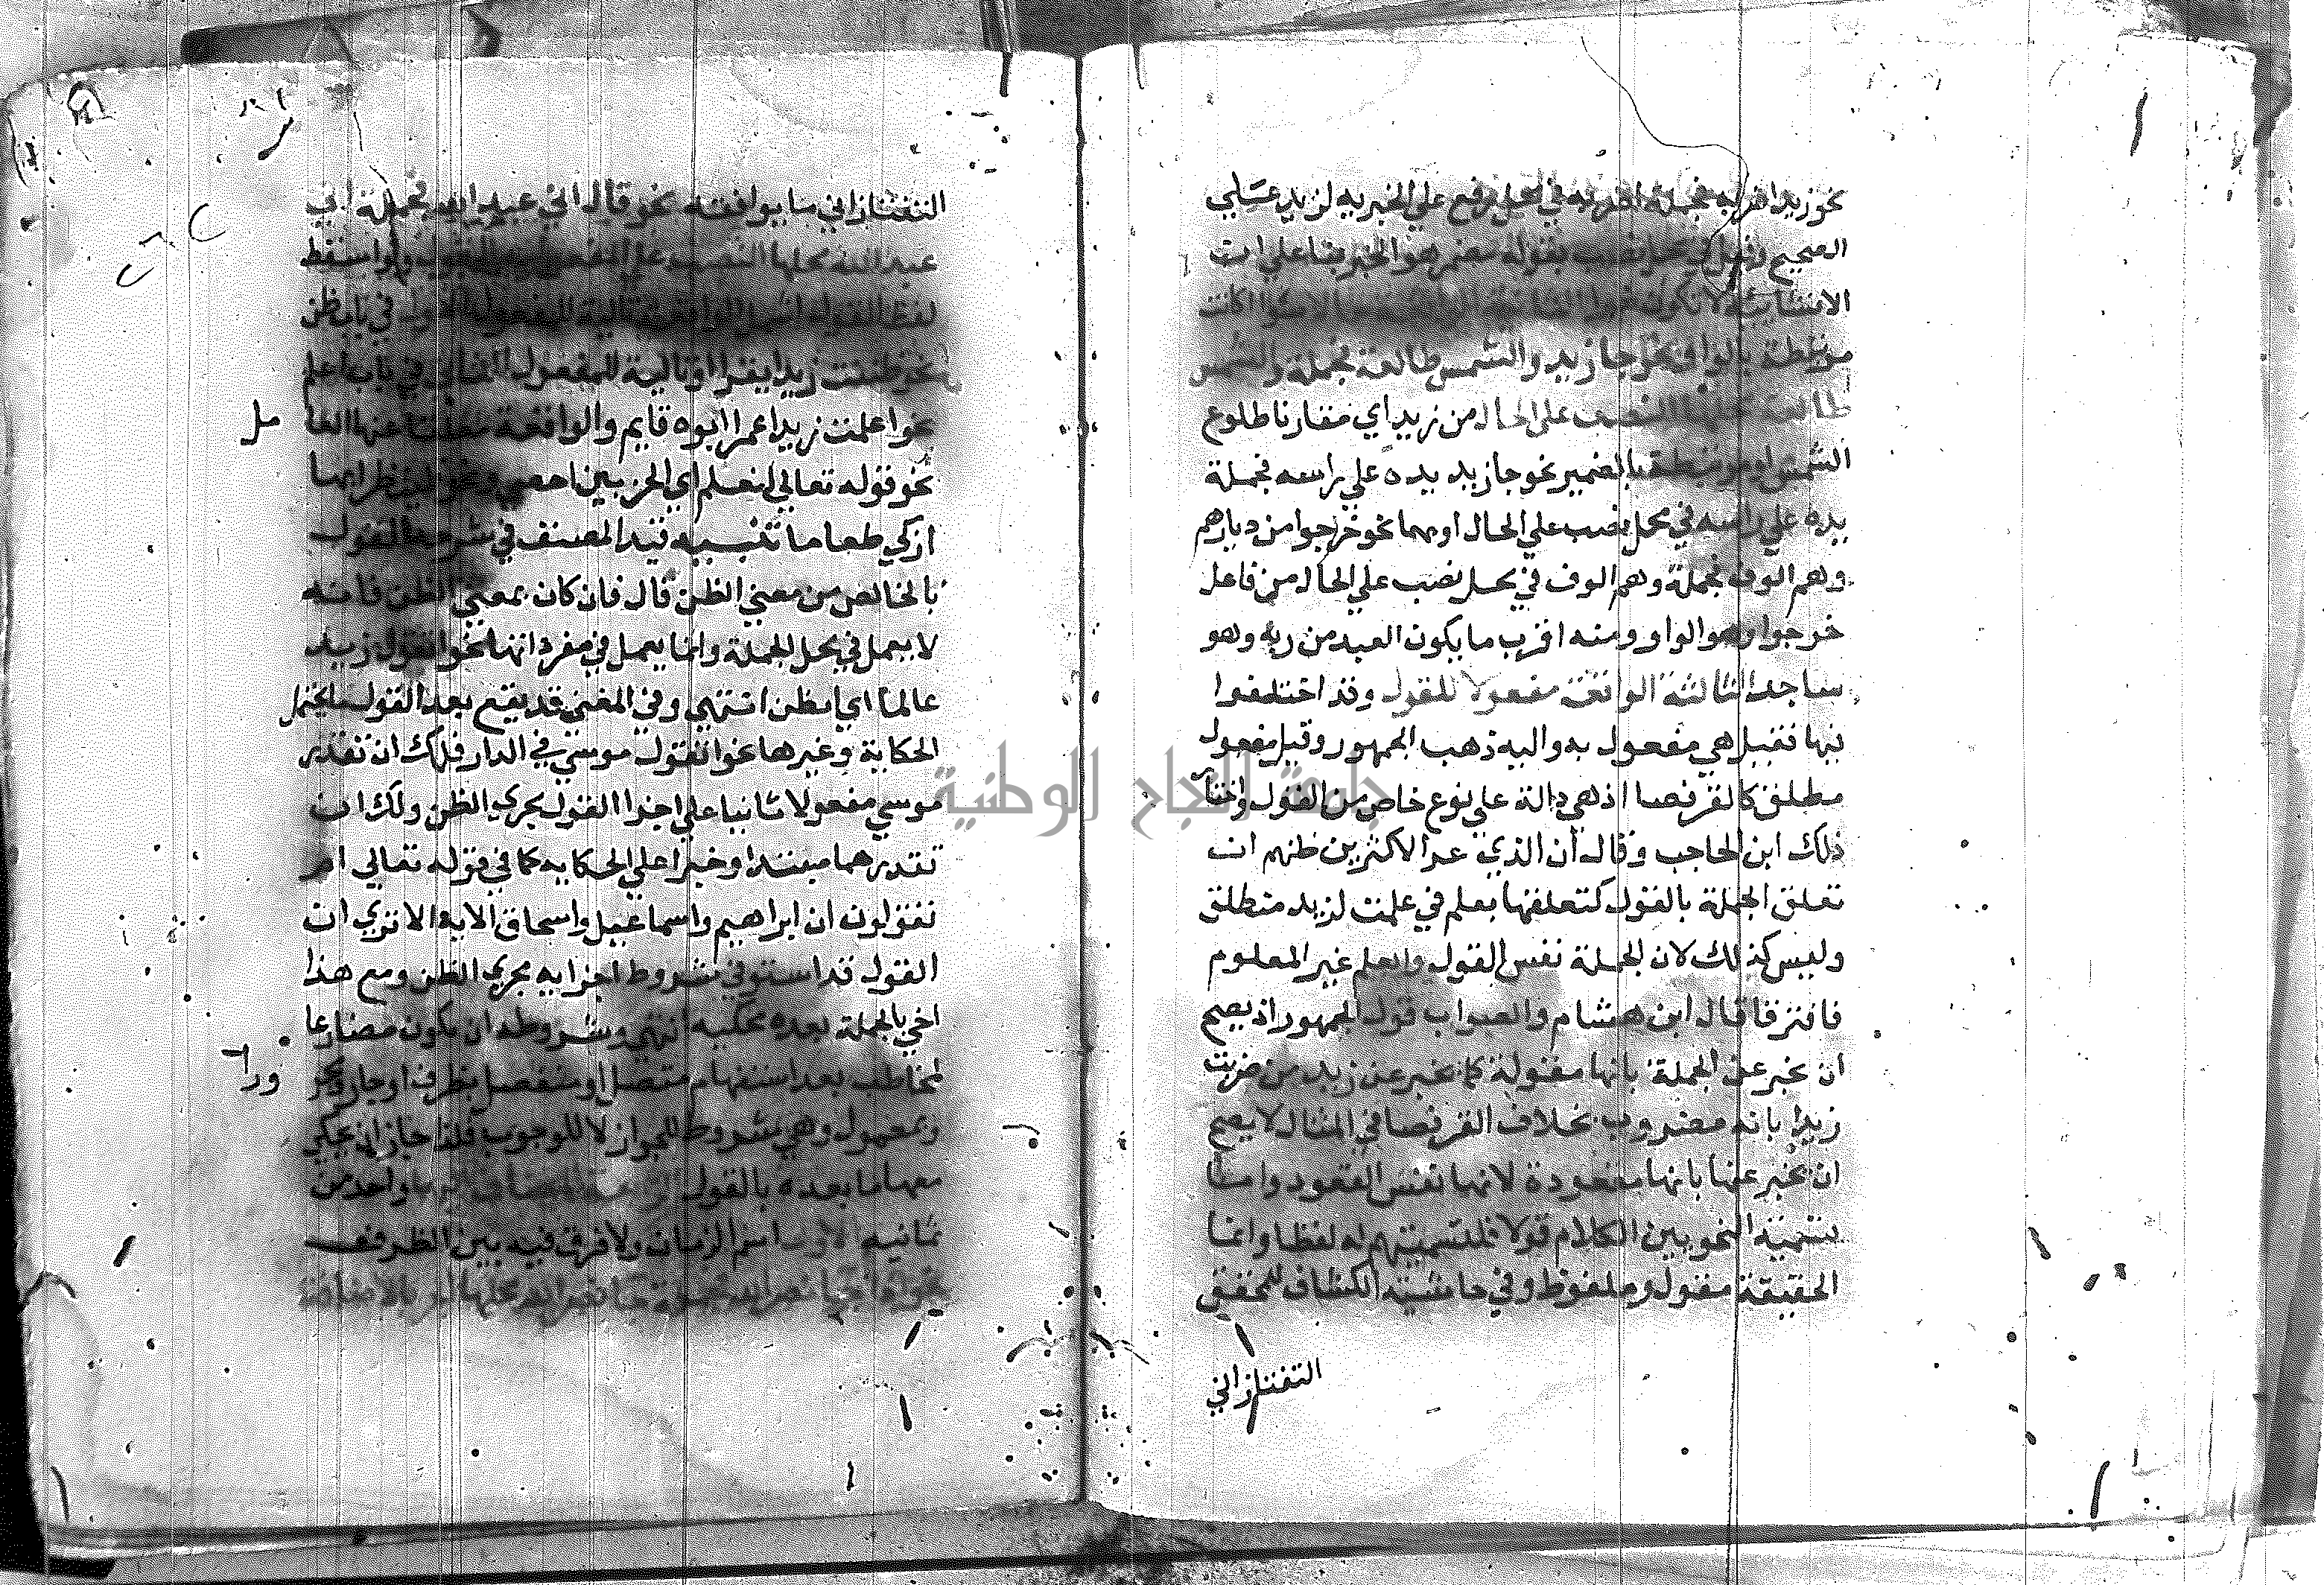 نحو زيد اضربه فجملة اضربه في محل رفع علي الخبريه لزيد علي
الصحيح وقيل في محل نصب بقول مضمر هو الخبر بنا علي ان
الانشائية لا تكون خبرا
مرتبطة بالواو نحو جا زيد والشمس طالعة فجملة والشمس
طالعة النصب علي الحال من زيد اي مقارنا طلوع
الشمس او مرتبطة بالضمير نحو جا زيد يده علي راسه فجملة
يده علي راسه في محل نصب علي الحال او بهما نحو خرجوا من ديارهم
وهم الوف فجملة وهم الوف في محل نصب علي الحال من فاعل
خرجوا وهو الواو ومنه اقرب ما يكون العبد من ربه وهو
ساجد الثالثة الواقعة مفعولا للقول وقد اختلفوا
فيها فقيل هي مفعول به واليه ذهب الجمهور وقيل مفعول
مطلق كالقرفصا اذ هي دالة علي نوع خاص من القول واختار
ذلك ابن الحاجب وقال ان الذي غر الاكثرين ظنهم ان
تعلق الجملة بالقول كتعلقها بعلم في علمت لزيد منطلق
وليس كذلك لان الجملة نفس القول والعلم غير المعلوم
فافترقا قال ابن هشام والصواب قول الجمهور اذ يصح
ان يخبر عن الجملة بانها مقولة كما يخبر عن زيد من ضربت
زيدا بانه مضروب بخلاف القرفصا في المثال لا يصح
ان يخبر عنها بانها مقعودة لانها نفس القعود واما
تسمية النحويين الكلام قولا فلتسميتهم له لفظا وانما
الحقيقة مقول وملفوظ وفي حاشية الكشاف للمحقق
التفتازاني
التفتازاني ما يوافقه نحو قال اني عبد الله فجملة اني
عبد الله محلها النصب علي المفعولية ولو اسقط
لفظ القول الواقعة تالية للمفعول الاول في باب ظن
نحو ظننت زيدا يقرا او تالية للمفعول الثاني في باب اعلم
نحو اعلمت زيدا عمرا ابوه قايم والواقعة معلقا عنها العا
مل
نحو قوله تعالي لنعلم اي الحزبين احصي ونحو فلينظر ايها
ازكي طعاما تنبيه قيد المصنف في شرحه القول
بالخالص من معني الظن قال فان كان بمعني الظن فانه
لا يعمل في محل الجملة وانما يعمل في مفرداتها نحو اتقول زيدا
عالما اي اتظن انتهي وفي المغني قد يقع بعد القول ما يحتمل
الحكاية وغيرها نحو اتقول موسي في الدار فلك ان تقدر
موسي مفعولا ثانيا علي اجرا القول مجري الظن ولك ان
تقدرهما مبتدا وخبرا علي الحكايه كما في قوله تعالي ام
تقولون ان ابراهيم واسماعيل واسحاق الاية الا تري ان
القول قد استوفي شروط اجرايه مجري الظن ومع هذا
اخي بالجملة بعده محكيه انتهي وشروطه ان يكون مضارعا
لمخاطب بعد استفهام متصل او منفصل بظرف او جار ومجر
ورا
ومعمول وهي شروط للجواز لا للوجوب فلذا جاز ان يحكي
معها ما بعده بالقول المضاف اليها واحد من
ثمانيه الاول اسم الزمان ولا فرق فيه بين الظرف